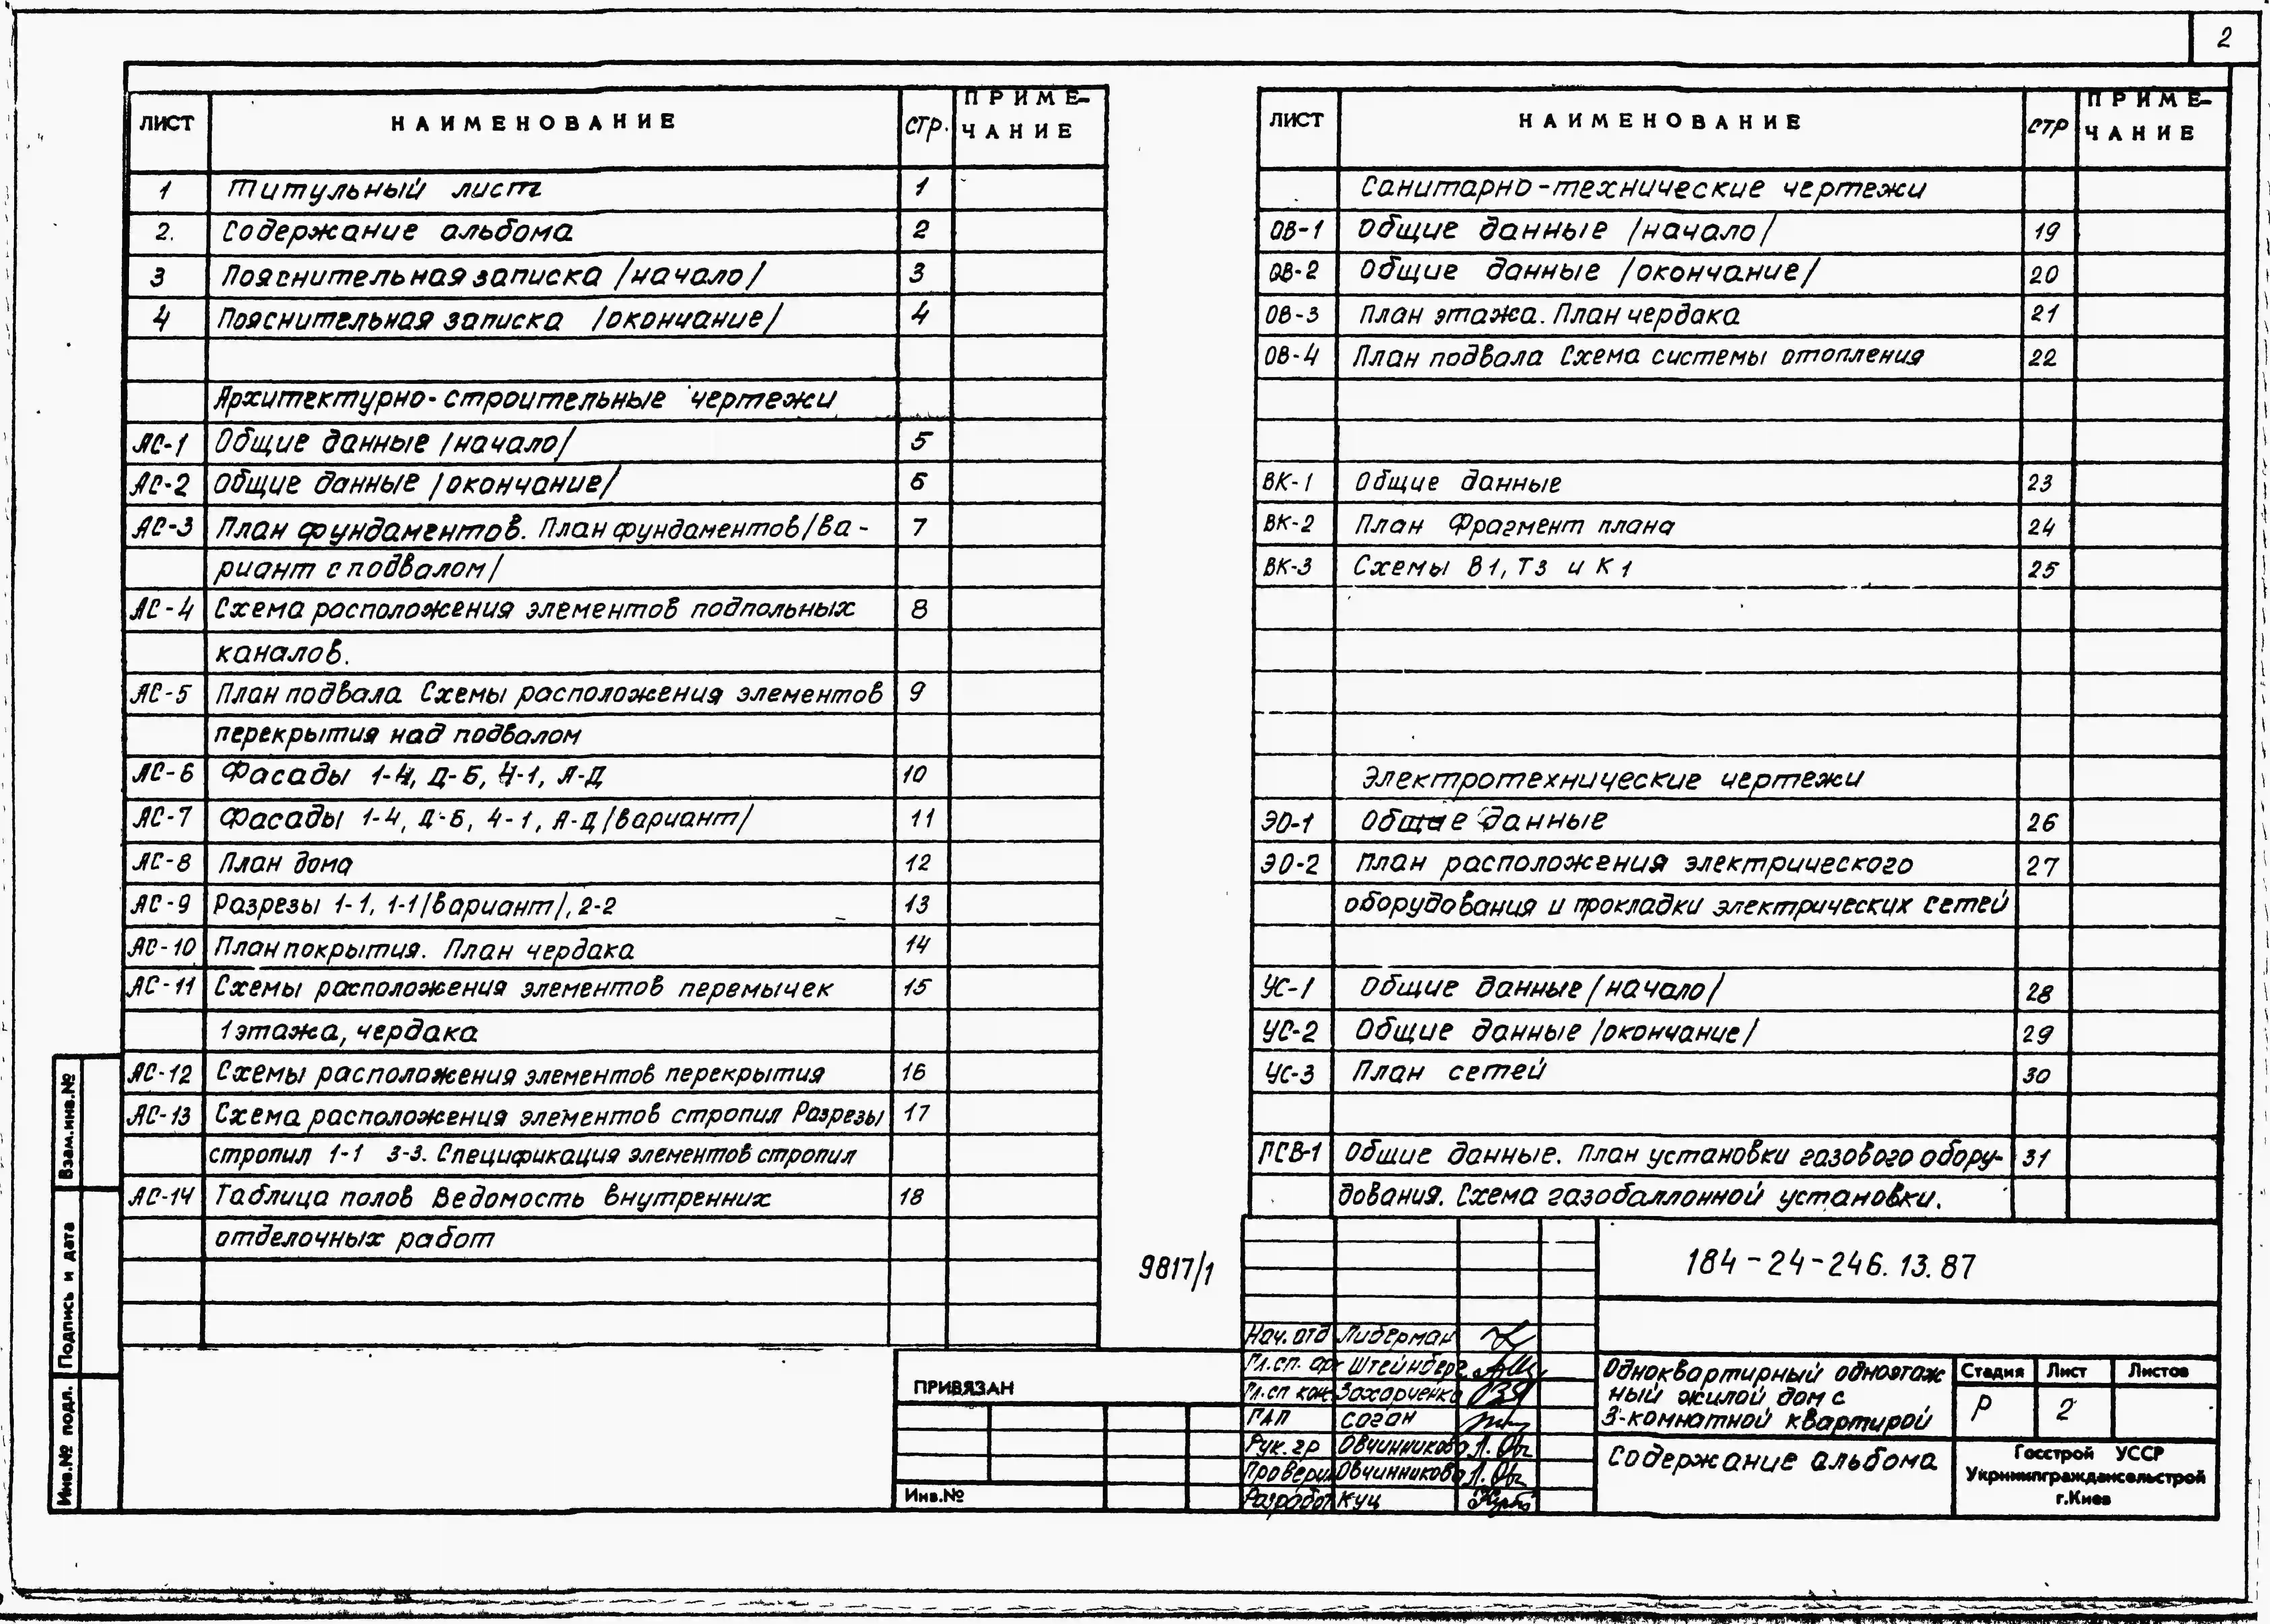 2
ЛИСТ НАИМЕНОВАНИЕ СТР. ПРИМЕ-
ЧАНИЕ
1 Титульный лист 1
2. Содержание альбома 2
3 Пояснительная записка /начало/ 3
4 Пояснительная записка /окончание/ 4
Архитектурно-строительные чертежи
АС-1 Общие данные /начало/ 5
АС-2 Общие данные /окончание/ 6
АС-3 План фундаментов. План фундаментов/ва- 7
риант с подвалом/
АС-4 Схема расположения элементов подпольных 8
каналов.
АС-5 План подвала Схемы расположения элементов 9
перекрытия над подвалом
АС-6 Фасады 1-4, Д-Б, 4-1, А-Д 10
АС-7 Фасады 1-4, Д-Б, 4-1, А-Д/вариант/ 11
АС-8 План дома 12
АС-9 Разрезы 1-1, 1-1/вариант/, 2-2 13
АС-10 План покрытия. План чердака 14
АС-11 Схемы расположения элементов перемычек 15
1 этажа, чердака
АС-12 Схемы расположения элементов перекрытия 16
АС-13 Схема расположения элементов стропил Разрезы 17
стропил 1-1 3-3. Спецификация элементов стропил
АС-14 Таблица полов Ведомость внутренних 18
отделочных работ
ЛИСТ НАИМЕНОВАНИЕ СТР ПРИМЕ-
ЧАНИЕ
Санитарно-технические чертежи
ОВ-1 Общие данные /начало/ 19
ОВ-2 Общие данные /окончание/ 20
ОВ-3 План этажа. План чердака 21
ОВ-4 План подвала Схема системы отопления 22
ВК-1 Общие данные 23
ВК-2 План Фрагмент плана 24
ВК-3 Схемы В1, Т3 и К1 25
Электротехнические чертежи
ЭО-1 Общие данные 26
ЭО-2 План расположения электрического 27
оборудования и прокладки электрических сетей
УС-1 Общие данные /начало/ 28
УС-2 Общие данные /окончание/ 29
УС-3 План сетей 30
ГСВ-1 Общие данные. План установки газового обору- 31
дования. Схема газобаллонной установки.
9817/1
184-24-246.13.87
Нач. отд Либерман
Гл.сп. арх Штейнберг
Гл.сп кон Захарченко
ГАП Соган
Рук. гр Овчинникова
Проверил Овчинникова
Разработ Куц
Одноквартирный одноэтаж
ный жилой дом с
3-комнатной квартирой
Содержание альбома
Стадия Лист Листов
Р 2
Госстрой УССР
Укрниипграждансельстрой
г.Киев
ПРИВЯЗАН
Инв.№
Взам.инв.№
Подпись и дата
Инв.№ подл.